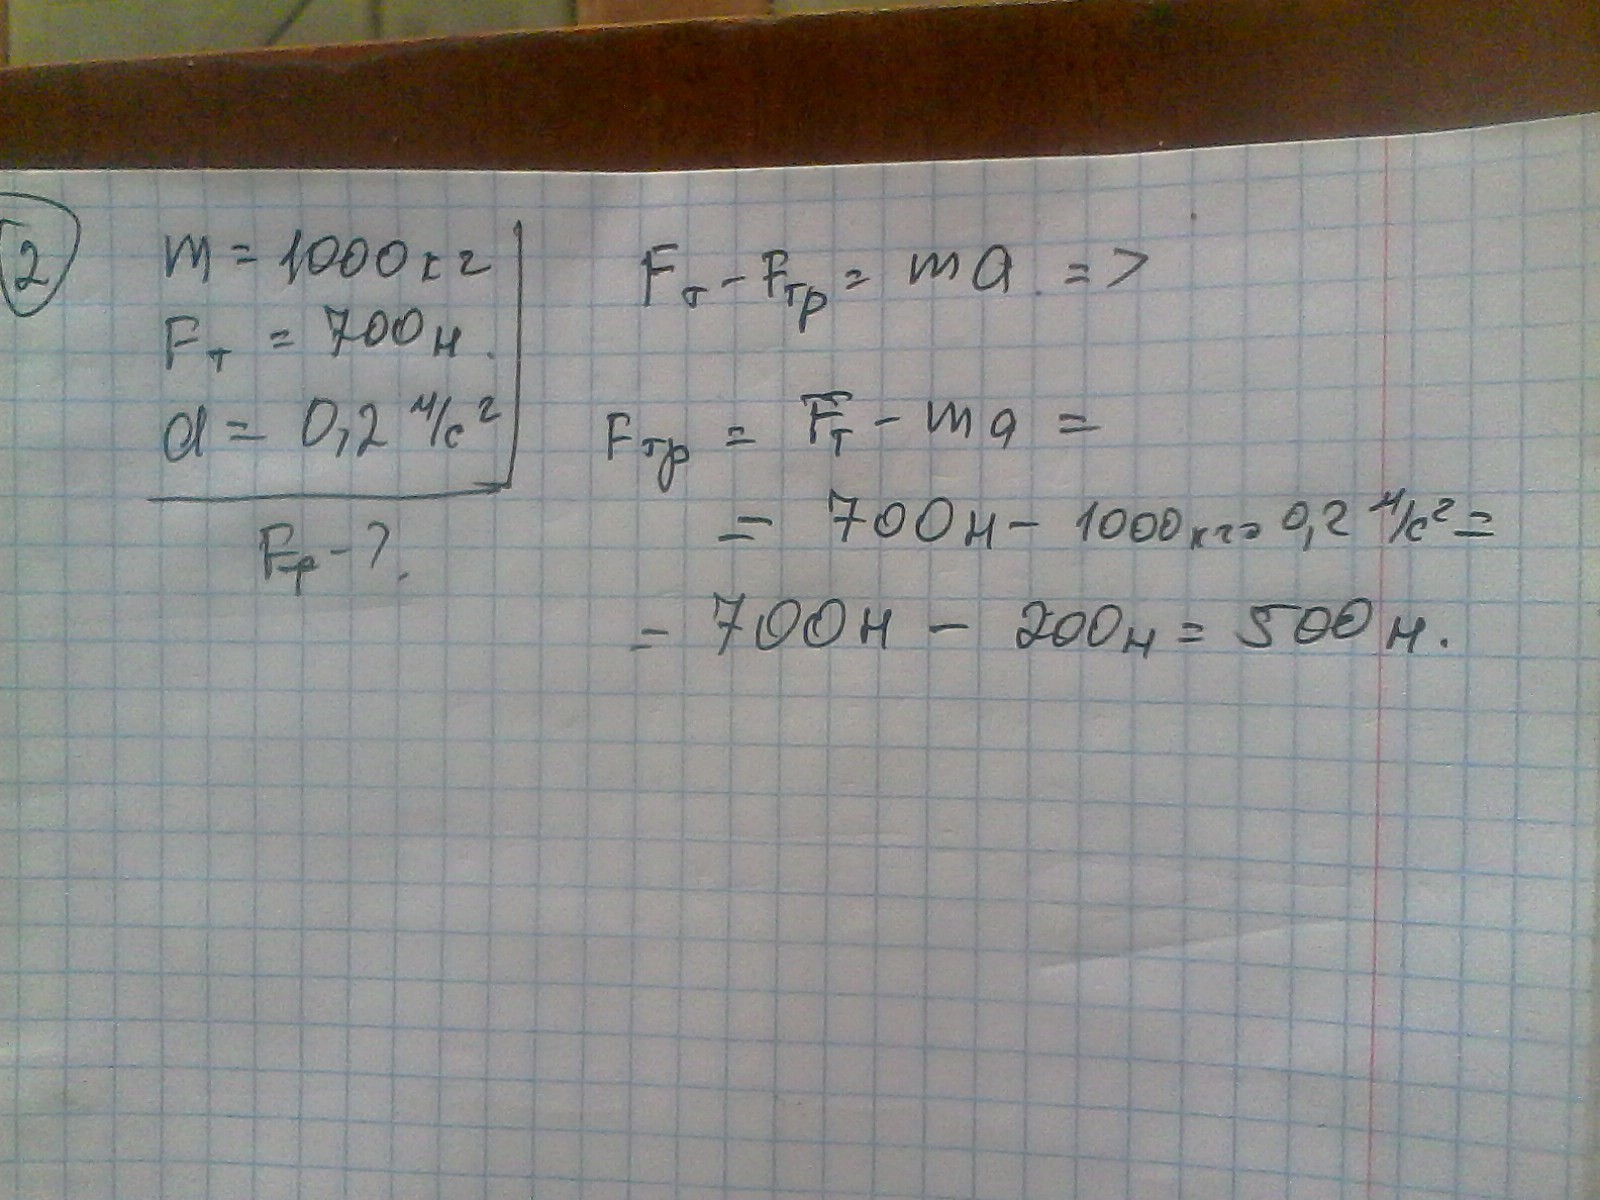 2
m = 1000 кг
Fт = 700 н.
a = 0,2 м/с²
Fтр - ?.
Fт - Fтр = ma. =>
Fтр = Fт - ma =
= 700 н - 1000 кг · 0,2 м/с² =
= 700 н - 200 н = 500 н.